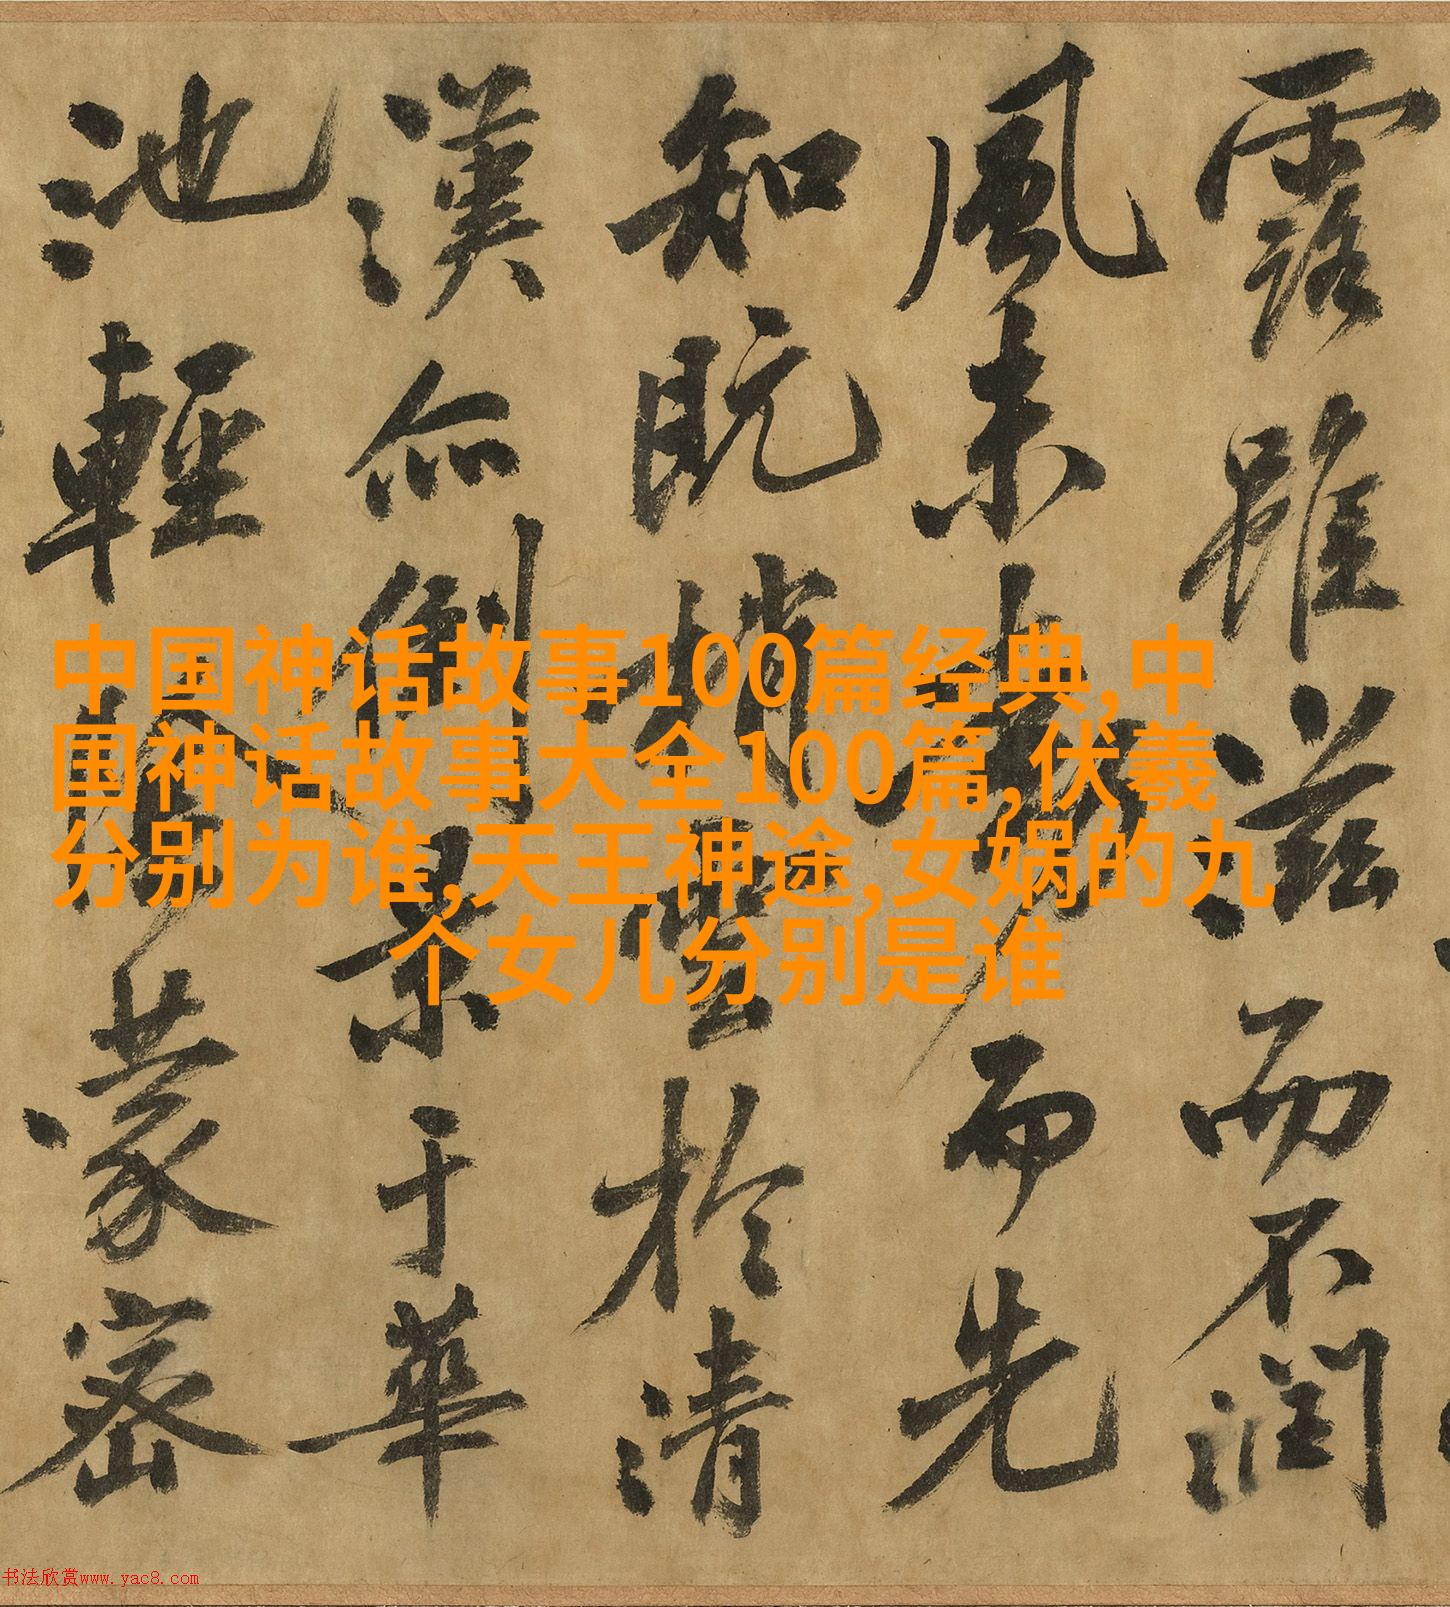 露雖滋而不潤
風未動而先
知既梢雲於清
漢亦倒景于華
池輕陰蒙密
中国神话故事100篇经典,中
国神话故事大全100篇,伏羲
分别为谁,天王神途,女娲的九
个女儿分别是谁
书法欣赏www.yac8.com